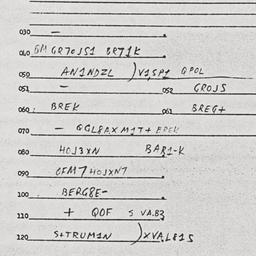 030 -
040 GM GR70JS1 BRT1K
050 AN1NDZL )V1SP1 QPOL
051 - 052 GROJS
060 BREK 061 BREG+
070 - QGL8AXM17+ EREK
080 HOJ3XN BAR1-K
090 OFM7HOJXN7
100 BERG8E-
110 + QOF S VA.B3
120 S+TRUM1N )XVAL81S